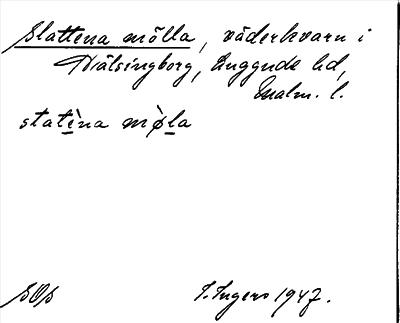 Slattena mölla, väderkvarn i
Hälsingborg, Luggude hd,
Malm. l.
statèna mø̀la
sOs I. Ingers 1947.